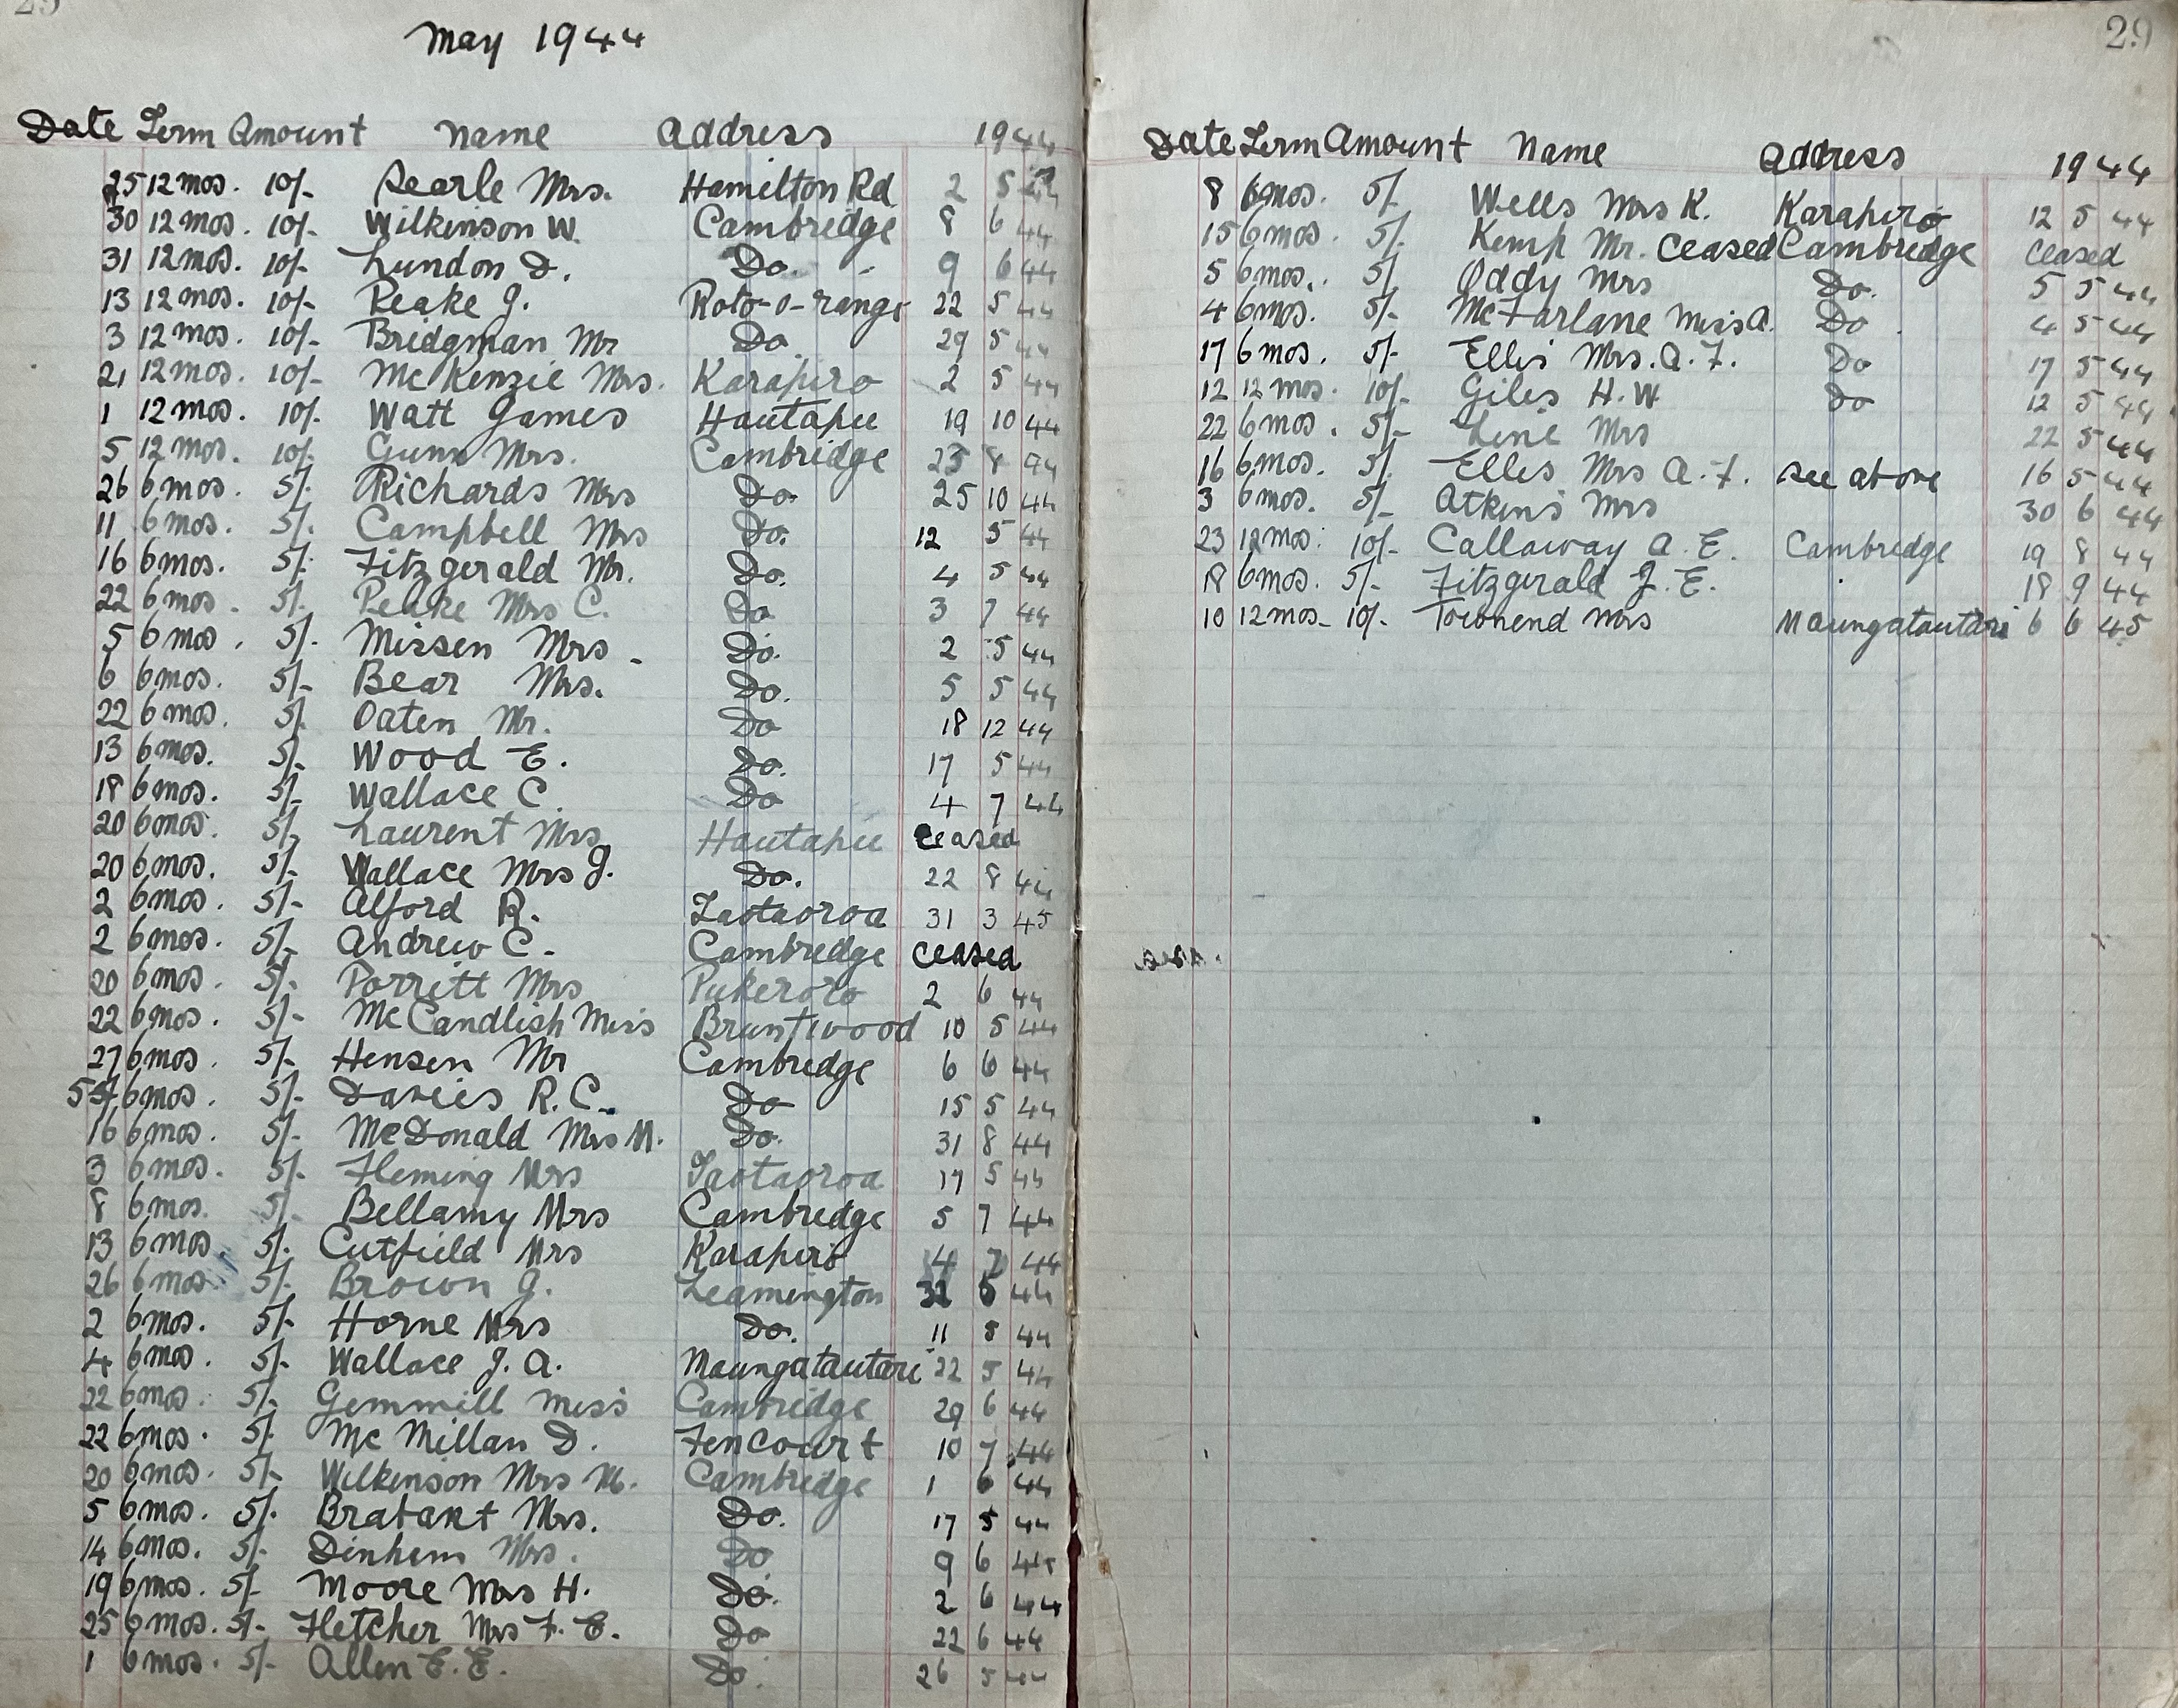 29
May 1944
Date Term Amount Name Address 1944
25 12 mos. 10/- Searle Mrs. Hamilton Rd 2 5 44
30 12 mos. 10/- Wilkinson W. Cambridge 8 6 44
31 12 mos. 10/- Lundon D. Do. 9 6 44
13 12 mos. 10/- Peake J. Roto-o-rangi 22 5 44
3 12 mos. 10/- Bridgman Mr Do. 29 5 44
21 12 mos. 10/- McKenzie Mrs. Karapiro 2 5 44
1 12 mos. 10/- Watt James Hautapu 19 10 44
5 12 mos. 10/- Gunn Mrs. Cambridge 23 8 44
26 6 mos. 5/- Richards Mrs Do. 25 10 44
11 6 mos. 5/- Campbell Mrs Do. 12 5 44
16 6 mos. 5/- Fitzgerald Mr. Do. 4 5 44
22 6 mos. 5/- Peake Mrs C. Do. 3 7 44
5 6 mos. 5/- Missen Mrs - Do. 2 5 44
6 6 mos. 5/- Bear Mrs. Do. 5 5 44
22 6 mos. 5/- Oaten Mr. Do 18 12 44
13 6 mos. 5/- Wood E. Do. 17 5 44
18 6 mos. 5/- Wallace C. Do 4 7 44
20 6 mos. 5/- Laurent Mrs Hautapu ceased
20 6 mos. 5/- Wallace Mrs J. Do. 22 8 44
2 6 mos. 5/- Alford R. Taotaoroa 31 3 45
2 6 mos. 5/- Andrew C. Cambridge ceased
20 6 mos. 5/- Porritt Mrs Pukeroro 2 6 44
22 6 mos. 5/- McCandlish Miss Bruntwood 10 5 44
27 6 mos. 5/- Hensen Mr Cambridge 6 6 44
6 mos. 5/- Davies R. C. Do 15 5 44
16 6 mos. 5/- McDonald Mrs M. Do. 31 8 44
3 6 mos. 5/- Fleming Mrs Taotaoroa 17 5 44
8 6 mos. 5/- Bellamy Mrs Cambridge 5 7 44
13 6 mos. 5/- Cutfield Mrs Karapiro 4 7 44
26 6 mos. 5/- Brown J. Leamington 44
2 6 mos. 5/- Horne Mrs Do. 11 8 44
4 6 mos. 5/- Wallace J. A. Maungatautari 22 5 44
22 6 mos. 5/- Gemmill Miss Cambridge 29 6 44
22 6 mos. 5/- McMillan D. Fencourt 10 7 44
20 6 mos. 5/- Wilkinson Mrs M. Cambridge 1 6 44
5 6 mos. 5/- Brabant Mrs. Do. 17 5 44
14 6 mos. 5/- Denhem Mrs. Do 9 6 44
19 6 mos. 5/- Moore Mrs H. Do. 2 6 44
25 6 mos. 5/- Fletcher Mrs F. E. Do 22 6 44
1 6 mos. 5/- Allen E. E. Do. 26 5 44
29
Date Term Amount Name Address 1944
8 6 mos. 5/- Wells Mrs K. Karapiro 12 5 44
15 6 mos. 5/- Kemp Mr. ceased Cambridge ceased
5 6 mos. 5/- Oddy Mrs Do. 5 5 44
4 6 mos. 5/- McFarlane Miss A. Do 4 5 44
17 6 mos. 5/- Ellis Mrs. A. F. Do 17 5 44
12 12 mos. 10/- Giles H. W. Do 12 5 44
22 6 mos. 5/- Line Mrs 22 5 44
16 6 mos. 5/- Ellis Mrs A. F. see above 16 5 44
3 6 mos. 5/- Atkins Mrs 30 6 44
23 12 mos. 10/- Callaway A. E. Cambridge 19 8 44
18 6 mos. 5/- Fitzgerald J. E. 18 9 44
10 12 mos. 10/- Townend Mrs Maungatautari 6 6 45